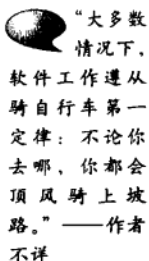 “大多数
情况下，
软件工作遵从
骑自行车第一
定律：不论你
去哪，你都会
顶风骑上坡
路。”——作者
不详